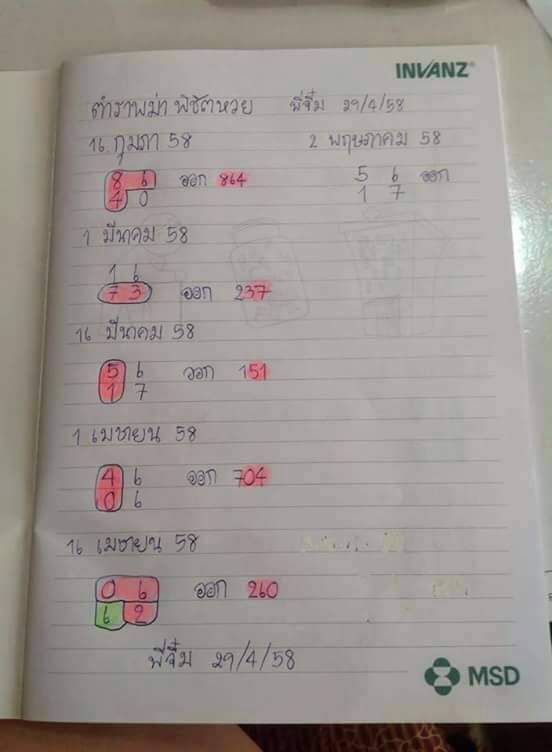 INVANZ®
ตำราพม่า พิชิตหวย พี่จิ๋ม 29/4/58
16 กุมภา 58
8 6 ออก 864
4 0
1 มีนาคม 58
1 6
7 3 ออก 237
16 มีนาคม 58
5 6 ออก 151
1 7
1 เมษายน 58
4 6 ออก 704
0 6
16 เมษายน 58
0 6 ออก 260
6 2
พี่จิ๋ม 29/4/58
2 พฤษภาคม 58
5 6 ออก
1 7
MSD